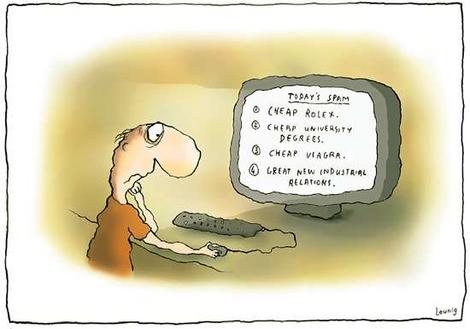 TODAY'S SPAM
① CHEAP ROLEX.
② CHEAP UNIVERSITY
DEGREES.
③ CHEAP VIAGRA.
④ GREAT NEW INDUSTRIAL
RELATIONS.
Leunig